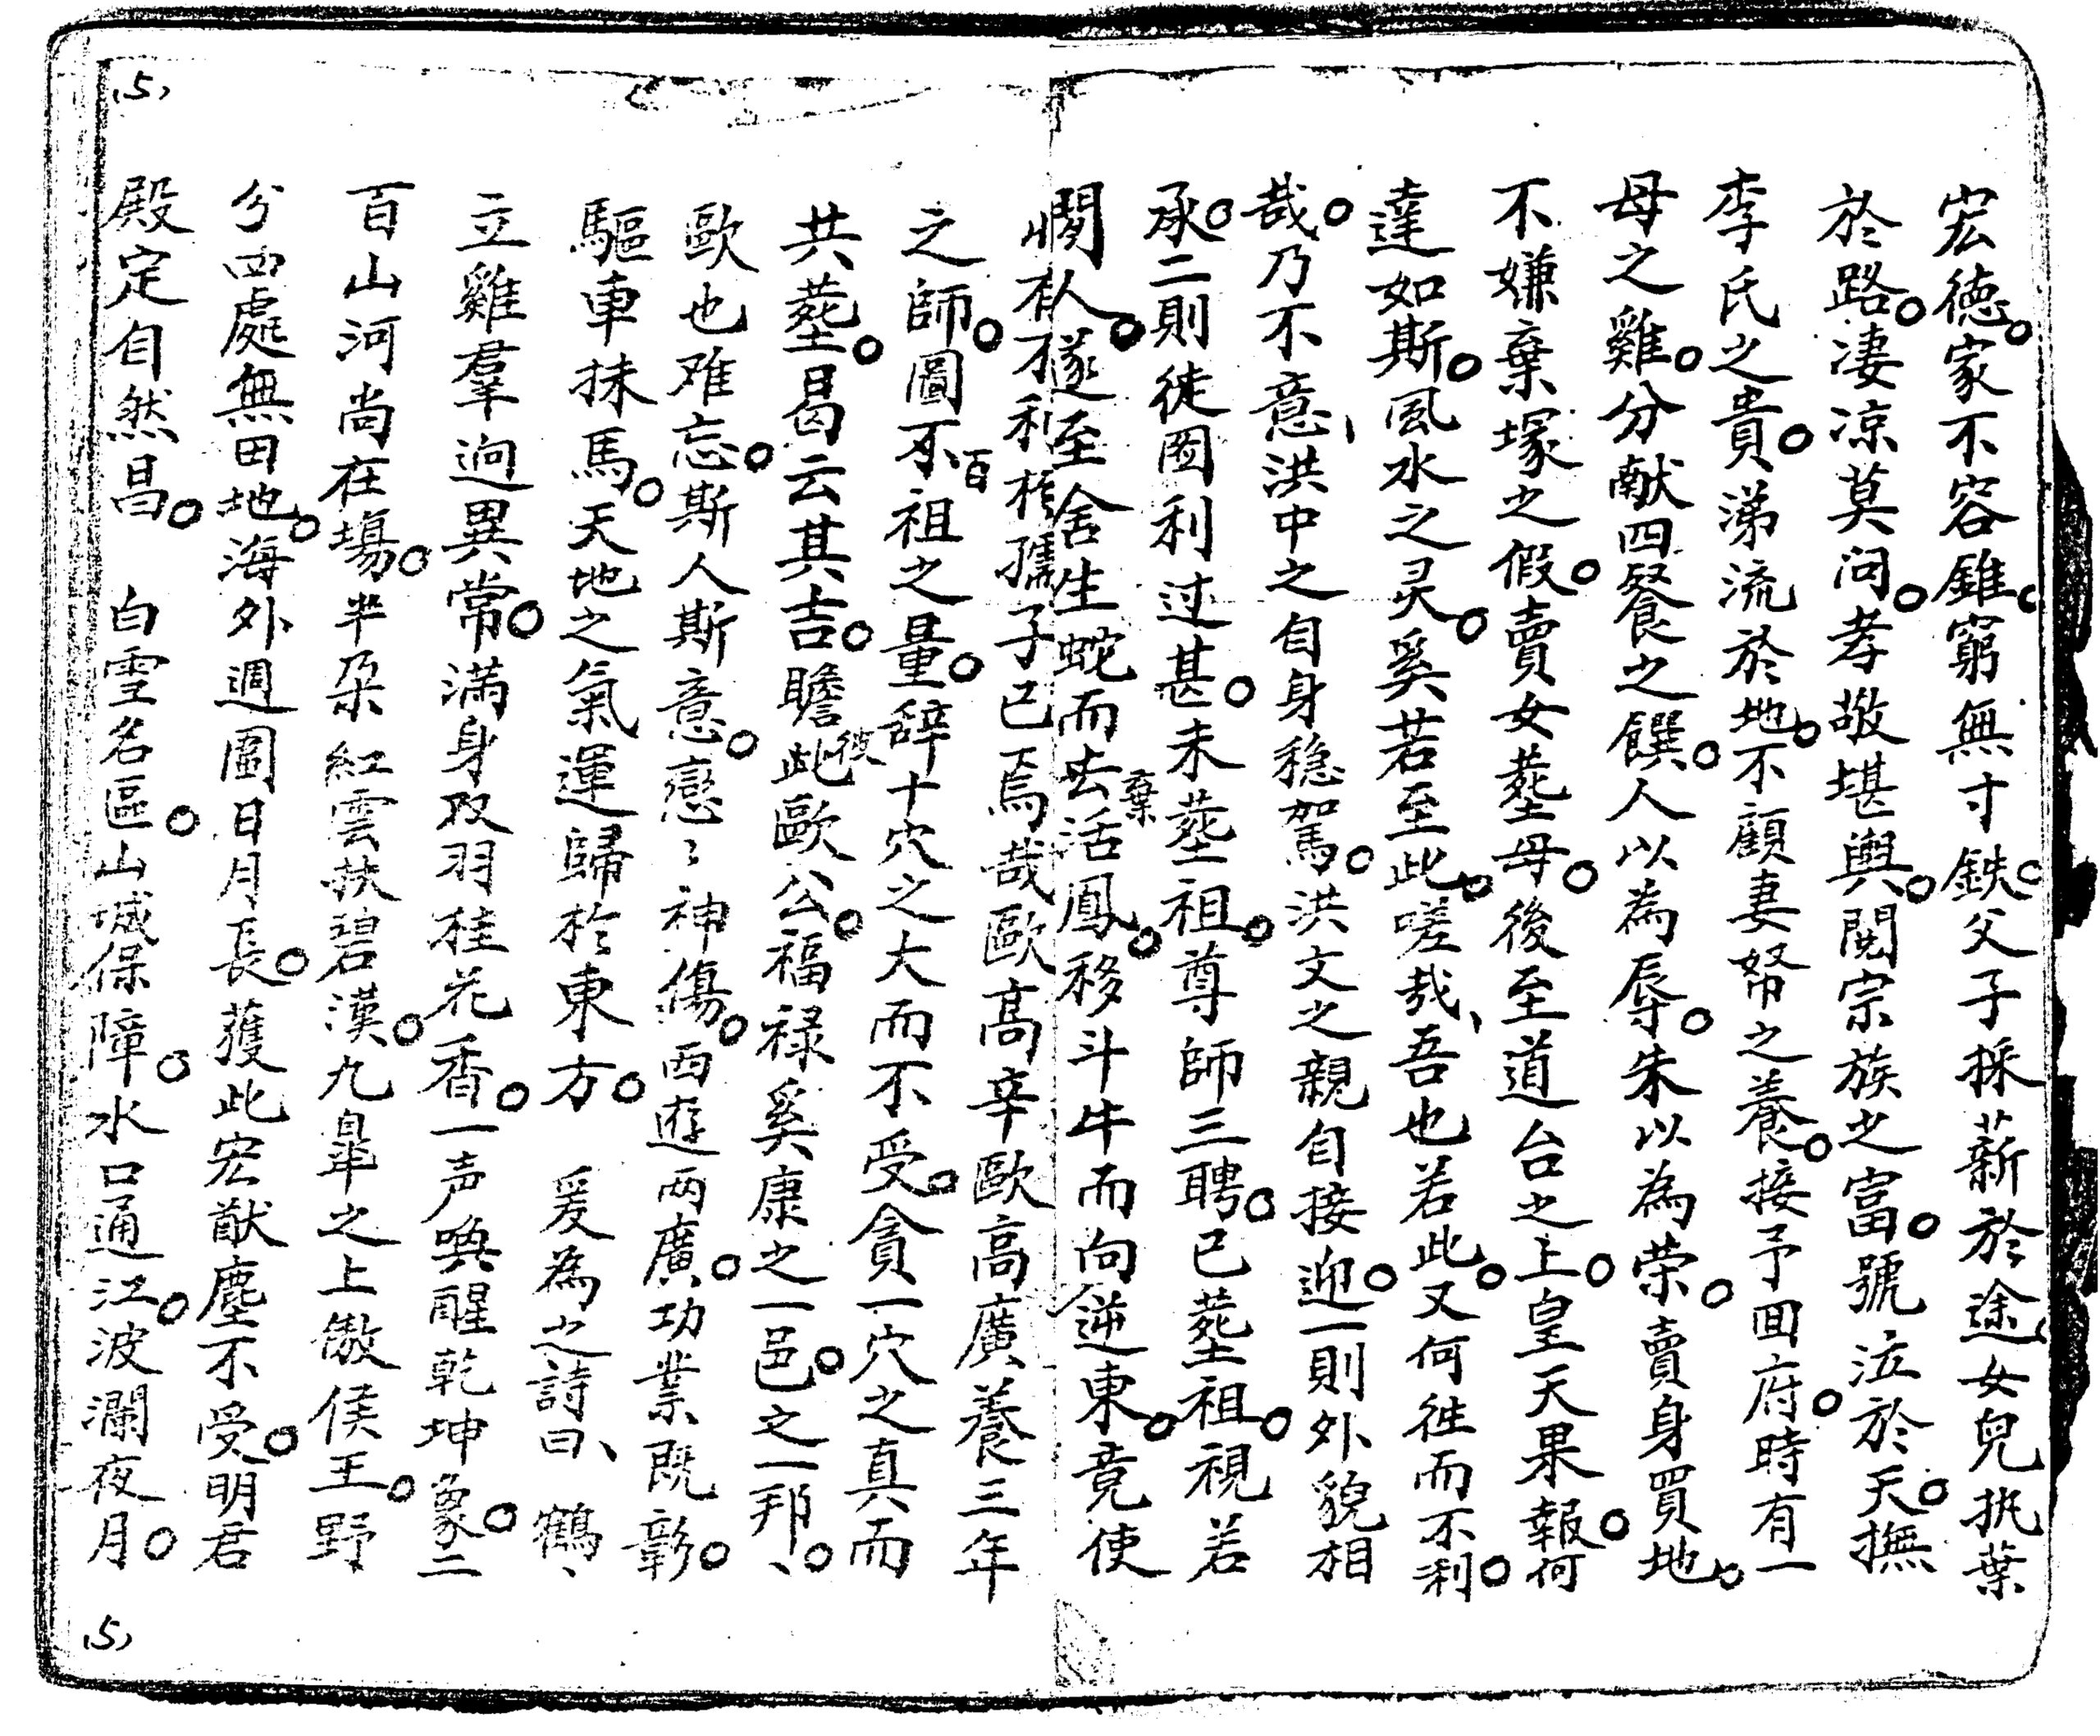 宏德。家不容錐。窮無寸鉄。父子採薪於途。女兒执葉
於路。淒涼莫问。孝敬堪輿。閱宗族之富。號泣於天。撫
李氏之貴。涕流於地。不顧妻帑之養。接予回府。時有一
母之雞。分献四餐之饌。人以為辱。朱以為荣。賣身買地。
不嫌棄塚之假。賣女塟母。後至道台之上。皇天果報。何
達如斯。風水之灵。奚若至此。嗟哉、吾也若此。又何徃而不利。
哉。乃不意、洪中之自身穏駕。洪文之親自接迎。一則外貌相
承。二則徒图利过甚。未塟祖。尊師三聘。已塟祖。視若
。遂至舍生蛇而去棄活鳳。移斗牛而向逆東。竟使
孺子已焉哉歐高辛歐高廣養三年
之師。圖不百祖之量。辞十穴之大而不受。貪一穴之真而
共塟。曷云其吉。瞻彼此歐公。福禄奚康之一邑。之一邦、。
歐也难忘。斯人斯意。戀〻神傷。西遊两廣。功業既彰。
驅車抹馬。天地之氣運歸於東方。 爰為之詩曰、 鶴、
立雞羣逈異常。满身双羽桂花香。一声喚醒乾坤象。二
百山河尚在塲。半朶紅雲扶碧漢。九皐之上傲侯王。野
兮四處無田地。海外週圍日月長。獲此宏猷塵不受。明君
殿定自然昌。 白雪名區。山城保障。水口通江。波瀾夜月。
(5)
(5)